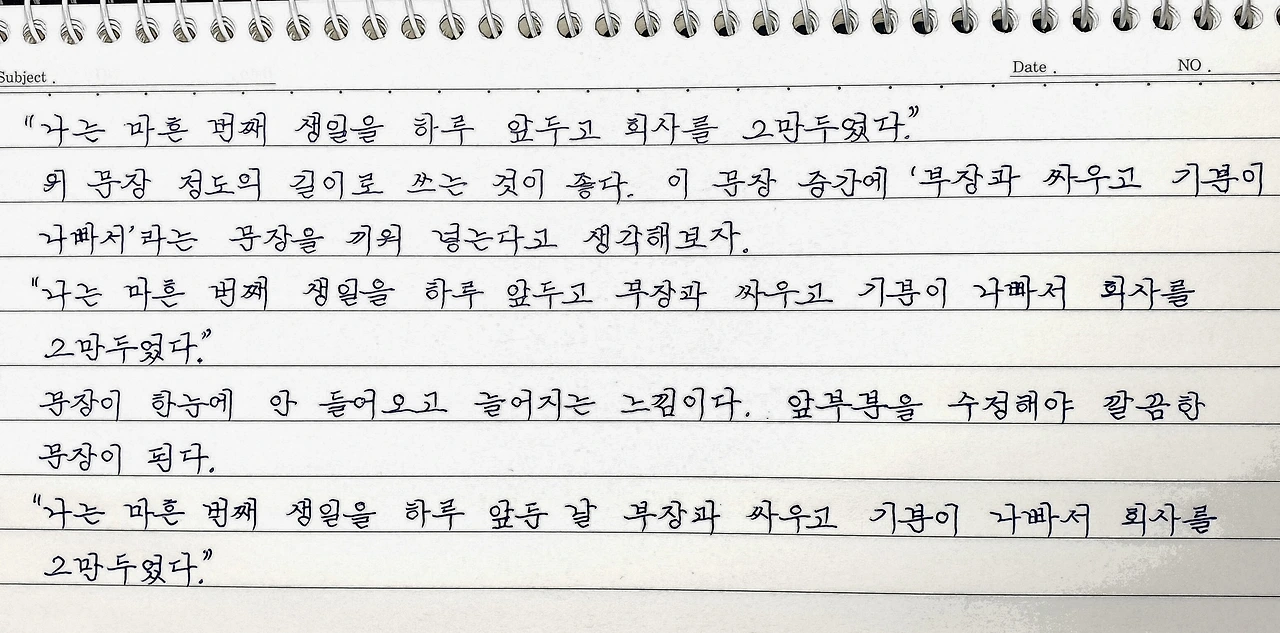 Subject .
Date . NO .
"나는 마흔 번째 생일을 하루 앞두고 회사를 그만두었다."
위 문장 정도의 길이로 쓰는 것이 좋다. 이 문장 중간에 '부장과 싸우고 기분이
나빠서'라는 문장을 끼워 넣는다고 생각해보자.
"나는 마흔 번째 생일을 하루 앞두고 부장과 싸우고 기분이 나빠서 회사를
그만두었다."
문장이 한눈에 안 들어오고 늘어지는 느낌이다. 앞부분을 수정해야 깔끔한
문장이 된다.
"나는 마흔 번째 생일을 하루 앞둔 날 부장과 싸우고 기분이 나빠서 회사를
그만두었다."